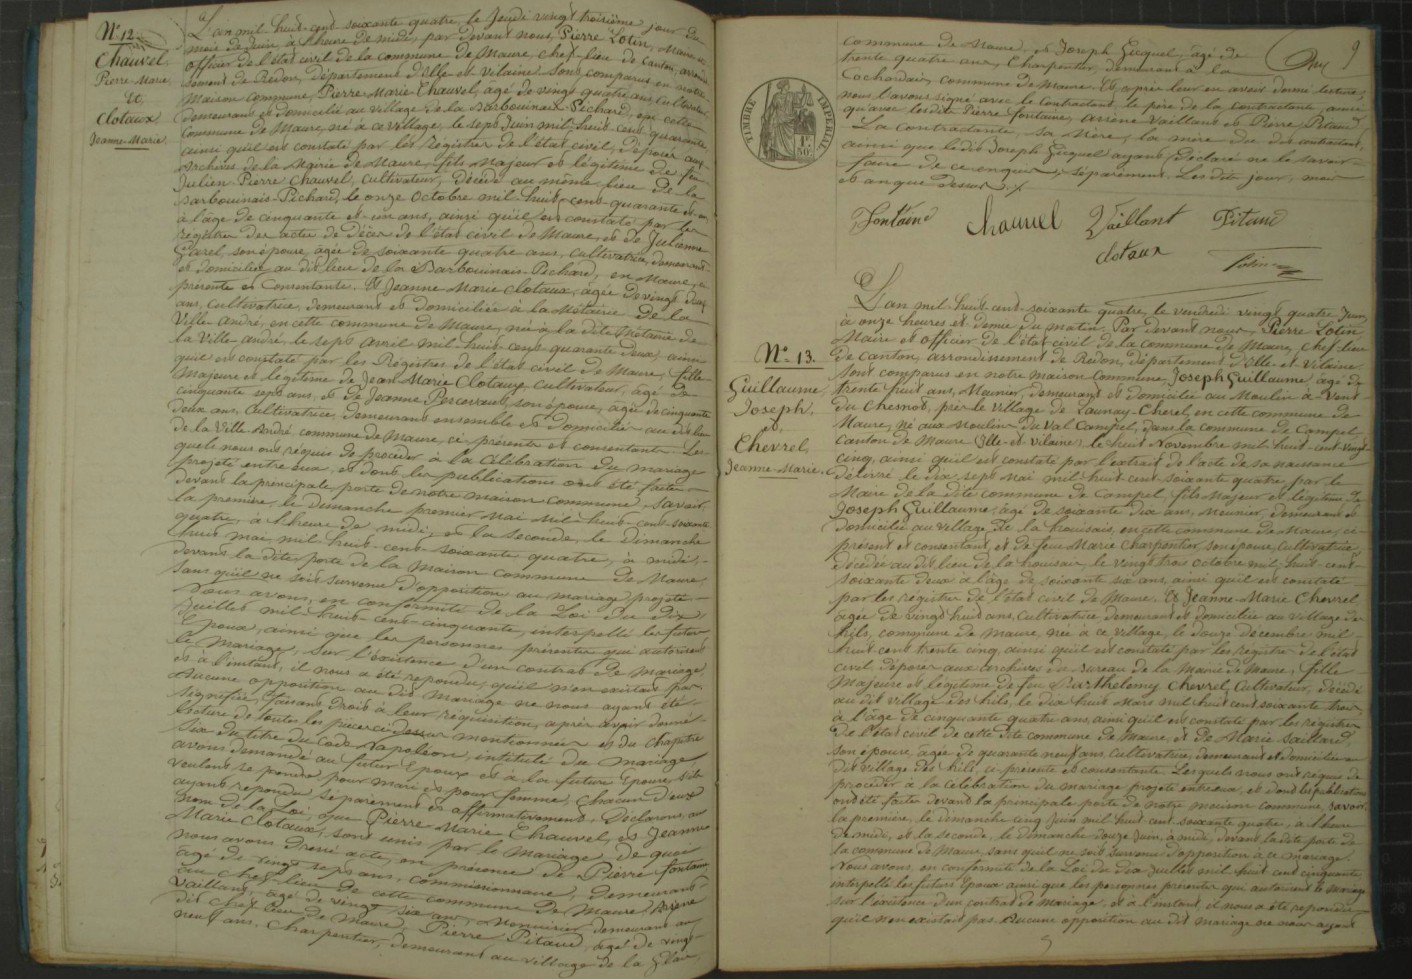 N°. 12.
Chauvel
Pierre Marie
Et
Clotaux
Jeanne-Marie
L'an mil huit-cent soixante quatre, le Jeudi vingt troisième jour du
mois de Juin, à l'heure de midi, par devant nous, Pierre Lotin, Maire et
officier de l'état civil de la commune de Maure, chef-lieu de Canton, arrondis
sement de Redon, département d'Ille et Vilaine, sont comparus en notre
Maison commune, Pierre-Marie Chauvel, âgé de vingt quatre ans,
demeurant et domicilié au village de la Barbouinais-Pichard, en cette
Commune de Maure, né à ce village, le sept Juin mil-huit-cent quarante
ainsi qu'il est constaté par les Registres de l'état civil, déposés aux
Archives de la Mairie de Maure, fils Majeur et légitime de feu
Julien-Pierre Chauvel, cultivateur, décédé au même lieu de la
Barbouinais-Pichard, le onze Octobre mil-huit-cent-quarante et
à l'âge de cinquante et-un ans, ainsi qu'il est constaté par les
registres des actes de Décès de l'état civil de Maure, et de Julienne
Garel, son épouse, âgée de soixante quatre ans, Cultivatrice, demeurant
et domiciliée au dit lieu de la Barbouinais-Pichard, en Maure,
présente et Consentante. Et Jeanne Marie Clotaux, âgée de vingt deux
ans, Cultivatrice, demeurant et domiciliée à la Métairie de la
Ville-André, en cette commune de Maure, née à la dite Métairie de
la Ville-André, le sept avril mil-huit-cent-quarante deux, ainsi
qu'il est constaté par les Registres de l'état civil de Maure, fille
Majeure et légitime de Jean Marie Clotaux, cultivateur, âgé de
cinquante sept ans, et de Jeanne, son épouse, âgée de cinquante
deux ans, Cultivatrice, demeurant ensemble et domiciliés au dit lieu
de la Ville André commune de Maure, ci-présents et consentants. Les-
quels nous ont requis de procéder à la Célébration du mariage
projeté entre eux, et dont les publications ont été faites
devant la principale porte de notre maison commune, savoir
la première, le dimanche premier mai mil huit-cent-soixante
quatre, à l'heure de midi, et la seconde, le dimanche
huit mai mil huit-cent-soixante quatre, à midi,
devant la dite porte de la maison commune de Maure,
sans qu'il ne soit survenu d'opposition au mariage projeté.
Nous avons, en conformité de la Loi du Dix
Juillet mil-huit-cent-cinquante, interpellé les futurs
Epoux, ainsi que les personnes présentes qui autorisent
le Mariage, sur l'existence d'un contrat de Mariage
et à l'instant, il nous a été répondu qu'il n'en existait pas.
Aucune opposition au dit mariage ne nous ayant été
signifiée, faisant droit à leur réquisition, après avoir donné
lecture de toutes les pièces ci-dessus mentionnées et du Chapitre
six du titre du Code Napoléon, intitulé du mariage
avons demandé au futur Epoux et à la future Epouse s'ils
veulent se prendre pour mari et pour femme, chacun d'eux
ayant répondu séparément et affirmativement, Déclarons au
nom de la Loi, que Pierre Marie Chauvel, et Jeanne
Marie Clotaux, sont unis par le Mariage, de quoi
nous avons dressé acte, en présence de Pierre Fontaine
âgé de vingt sept ans, commissionnaire, demeurant
au chef-lieu de cette commune de Maure, Arsène
Vaillant, âgé de vingt six ans, Menuisier, demeurant au
dit chef lieu de Maure, Pierre Pitaud, âgé de vingt-
neuf ans, Charpentier, demeurant au village de la
9
commune de Maure, et Joseph Guquel, âgé de
trente quatre ans, Charpentier, demeurant à la
commune de Maure. Et, après leur en avoir donné lecture,
nous l'avons signé avec le Contractant, le père de la Contractante, ainsi
qu'avec les dits Pierre Fontaine, Arsène Vaillant et Pierre Pitaud
La Contractante, sa Mère, la mère du dit contractant,
ainsi que le dit Joseph Guquel ayant déclaré ne le savoir
faire de ce enquis, séparément. Les dits jour, mois
et an que dessus.
TIMBRE IMPERIAL
1F. 50c.
Fontaine Chauvel Vaillant Pitaud
Clotaux Lotin
N°. 13.
Guillaume
Joseph,
et,
Chevrel,
Jeanne-Marie.
L'an mil-huit-cent-soixante quatre, le vendredi vingt quatre Juin,
à onze heures et demie du matin. Par devant nous, Pierre Lotin
Maire et officier de l'état civil de la commune de Maure, Chef-lieu
de Canton, arrondissement de Redon, département d'Ille-et-Vilaine,
sont comparus en notre maison Commune, Joseph Guillaume, âgé de
trente huit ans, Meunier, demeurant et domicilié au Moulin à Vent
du Chesnot, près le village de Launay-Cherel, en cette commune de
Maure, né aux Moulins du Val Campel, dans la commune de Campel,
Canton de Maure (Ille-et-Vilaine), le huit Novembre mil-huit-cent-vingt
cinq, ainsi qu'il est constaté par l'extrait de l'acte de sa naissance
délivré le dix sept Mai mil-huit-cent soixante quatre, par le
Maire de la dite commune de Campel, fils Majeur et légitime de
Joseph Guillaume, âgé de soixante dix ans, Meunier, demeurant et
domicilié au village de la, en cette commune de Maure, ci-
présent et consentant, et de feue Marie Charpentier, son épouse, Cultivatrice
décédée au dit lieu de la, le vingt trois octobre mil-huit-cent-
soixante deux à l'âge de soixante six ans, ainsi qu'il est constaté
par les registres de l'état civil de Maure. Et Jeanne-Marie Chevrel
âgée de vingt huit ans, Cultivatrice demeurant et domiciliée au village des
hils, commune de Maure, née à ce village, le douze décembre mil-
huit-cent trente cinq, ainsi qu'il est constaté par les registres de l'état
civil déposés aux archives du Bureau de la Mairie de Maure, fille
Majeure et légitime de feu Barthelemy Chevrel, Cultivateur, décédé
au dit village des hils, le dix huit Mars mil huit cent soixante trois,
à l'âge de cinquante quatre ans, ainsi qu'il est constaté par les registres
de l'état civil de cette dite commune de Maure, et de Marie Saillard,
son épouse, âgée de quarante neuf ans Cultivatrice, demeurant et domiciliée au
dit village des hils, ci-présente et consentante. Lesquels nous ont requis de
procéder à la célébration du mariage projeté entre eux, et dont les publications
ont été faites devant la principale porte de notre maison commune, savoir
la première, le dimanche cinq Juin mil huit cent soixante quatre, à l'heure
de midi, et la seconde, le dimanche douze Juin, à midi, devant la dite porte de
la commune de Maure, sans qu'il ne soit survenu d'opposition à ce mariage.
Nous avons, en conformité de la Loi du dix Juillet mil huit cent cinquante
interpellé les futurs Epoux ainsi que les personnes présentes qui autorisent le mariage
sur l'existence d'un contrat de Mariage, et à l'instant, il nous a été répondu
qu'il n'en existait pas. Aucune opposition au dit mariage ne nous ayant